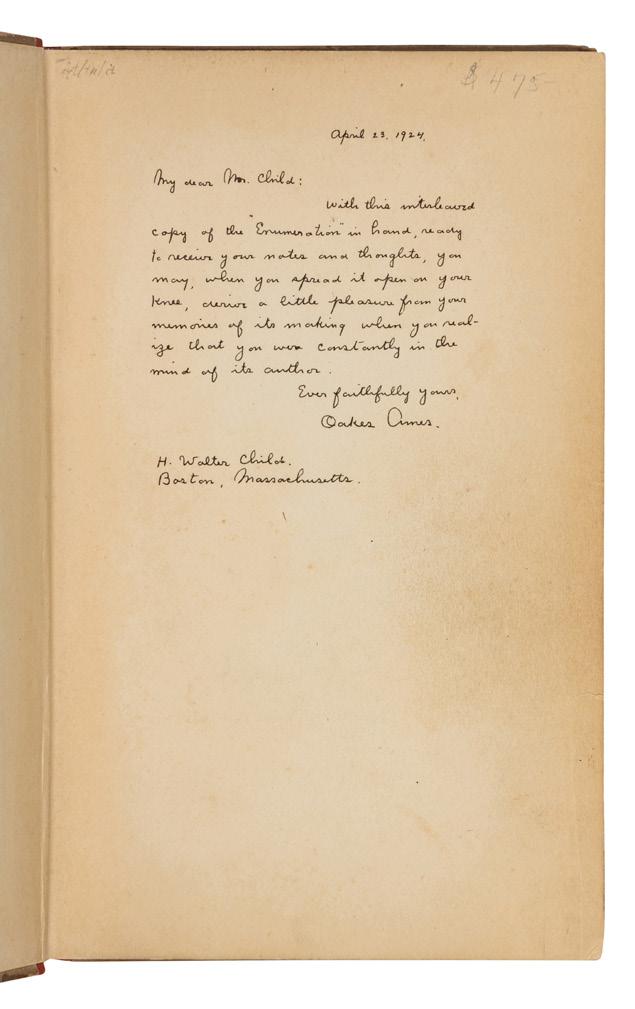 $ 475-
April 23. 1924.
My dear Mr. Child:
With this interleaved
copy of the "Enumeration" in hand, ready
to receive your notes and thoughts, you
may, when you spread it open on your
knee, derive a little pleasure from your
memories of its making when you real-
ize that you were constantly in the
mind of its author.
Ever faithfully yours,
Oakes Ames.
H. Walter Child.
Boston, Massachusetts.